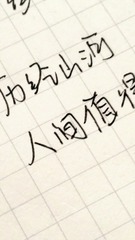 历经山河
人间值得